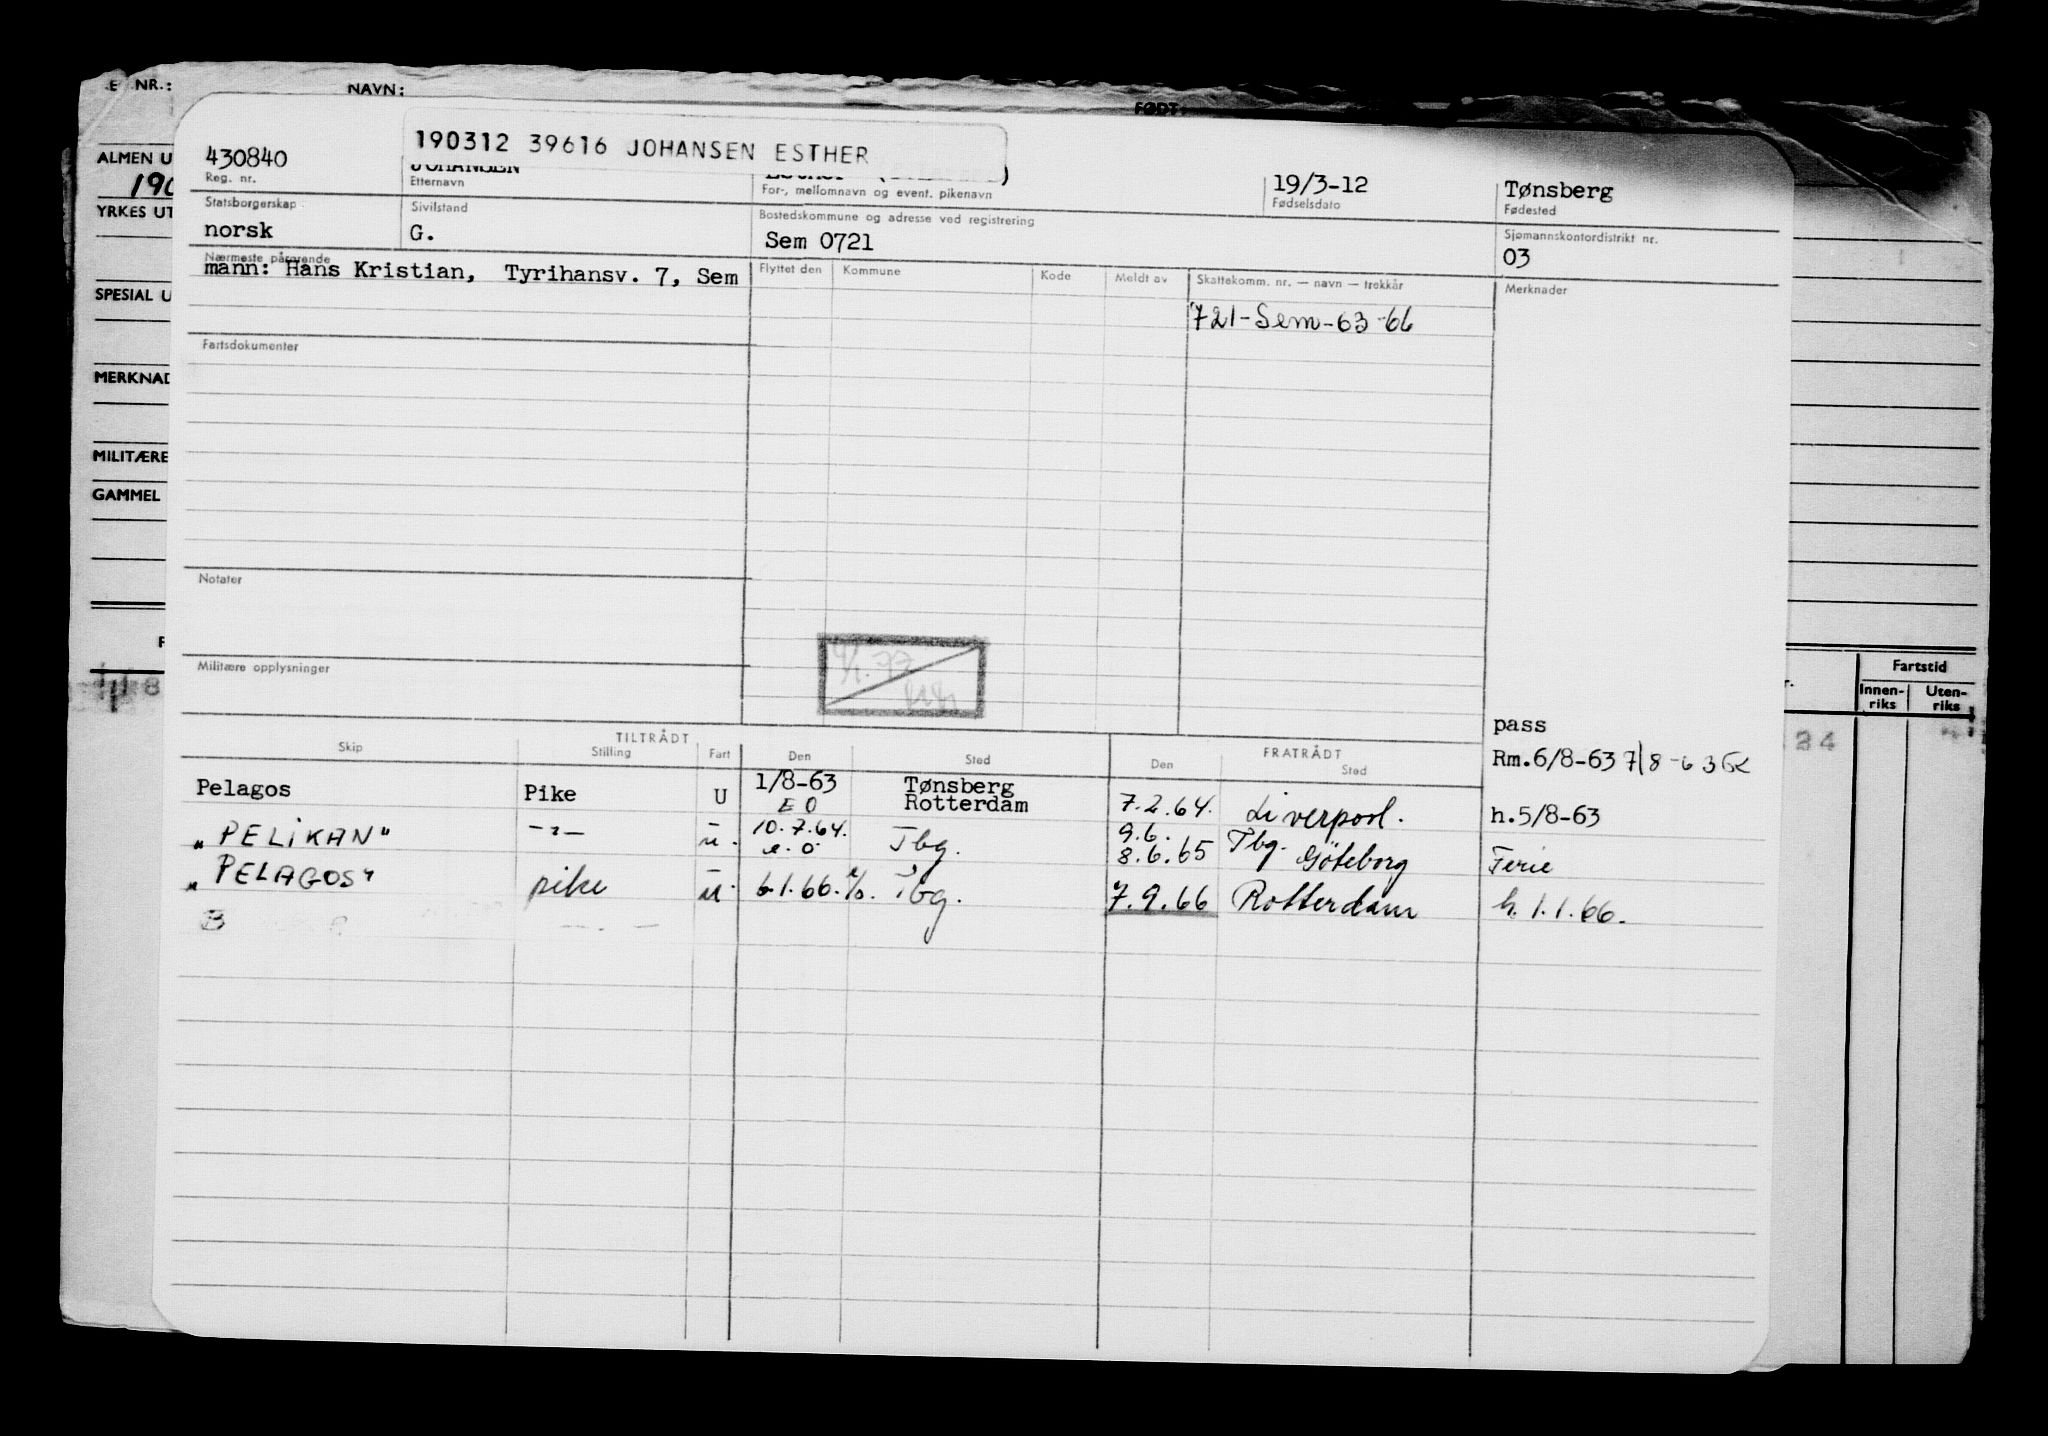 NR.: NAVN: FØDT:
190312 39616 JOHANSEN ESTHER
ALMEN U
190
YRKES UT
SPESIAL U
MERKNAD
MILITÆRE
GAMMEL
430840 JOHANSEN 19/3-12 Tønsberg
Reg. nr. Etternavn For-, mellomnavn og event. pikenavn Fødselsdato Fødested
Statsborgerskap Sivilstand Bostedskommune og adresse ved registrering Sjømannskontordistrikt nr.
norsk G. Sem 0721 03
Nærmeste pårørende Flyttet den Kommune Kode Meldt av Skattekomm. nr. — navn — trekkår Merknader
mann: Hans Kristian, Tyrihansv. 7, Sem
721-Sem-63-66
Fartsdokumenter
Notater
Militære opplysninger
Fartstid
Innen-riks Uten-riks
pass
TILTRÅDT FRATRÅDT
Skip Stilling Fart Den Sted Den Sted
Rm.6/8-63 7/8-63
Pelagos Pike U 1/8-63 Tønsberg
EO Rotterdam 7.2.64. Liverpool. h.5/8-63
"PELIKAN" -"- u. 10.7.64. Tbg. 9.6. Tbg.
8.6.65 Göteborg Ferie
"PELAGOS" pike u. 6.1.66. Tbg. 7.9.66 Rotterdam h. 1.1.66.
B